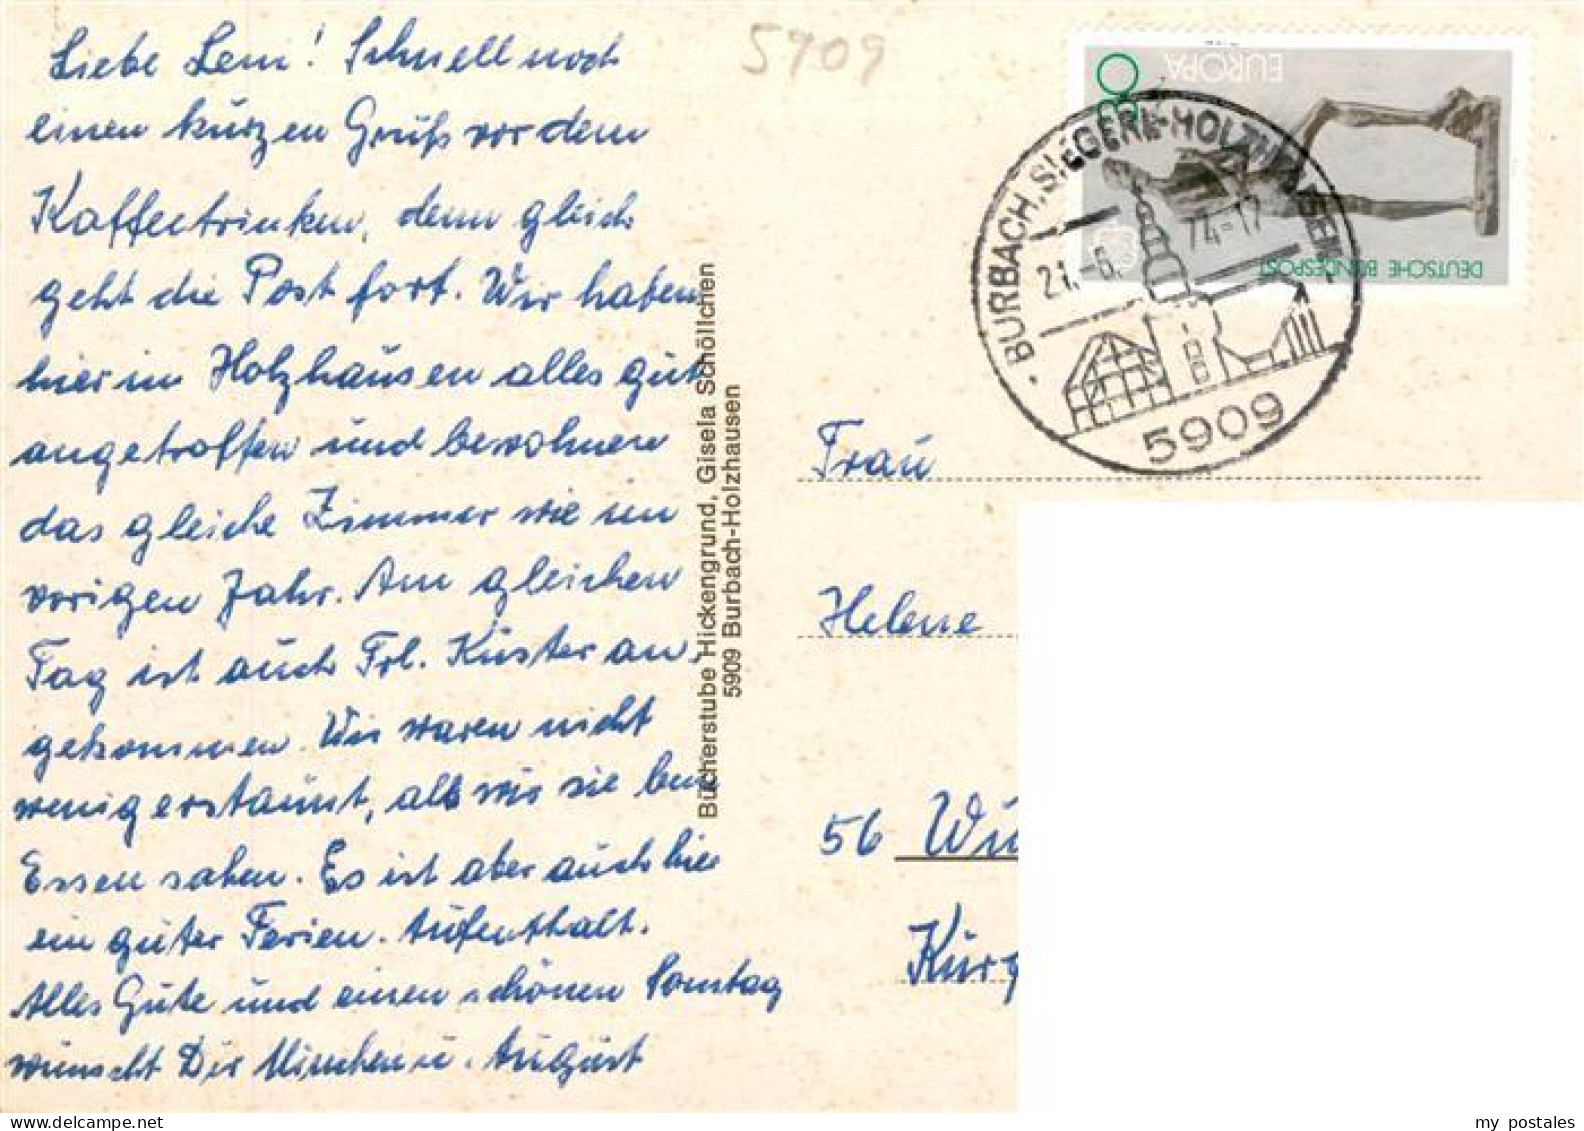 Liebe Leni! Schnell noch
einen kurzen Gruß vor dem
Kaffeetrinken, denn gleich
geht die Post fort. Wir haben
hier in Holzhausen alles gut
angetroffen und bewohnen
das gleiche Zimmer wie im
vorigen Jahr. Am gleichen
Tag ist auch Frl. Küster an-
gekommen. Wir waren nicht
wenig erstaunt, als wir sie beim
Essen sahen. Es ist aber auch hier
ein guter Ferien-Aufenthalt.
Alles Gute und einen schönen Sonntag
wünscht Dir Minchen u. August
Bücherstube Hickengrund, Gisela Schöllchen
5909 Burbach-Holzhausen
5909
EUROPA
DEUTSCHE BUNDESPOST
BURBACH, SIEGERL-HOLZHAUSEN
21.-6. 74-17
5909
Frau
Helene
56 Wu
Kurz
my postales